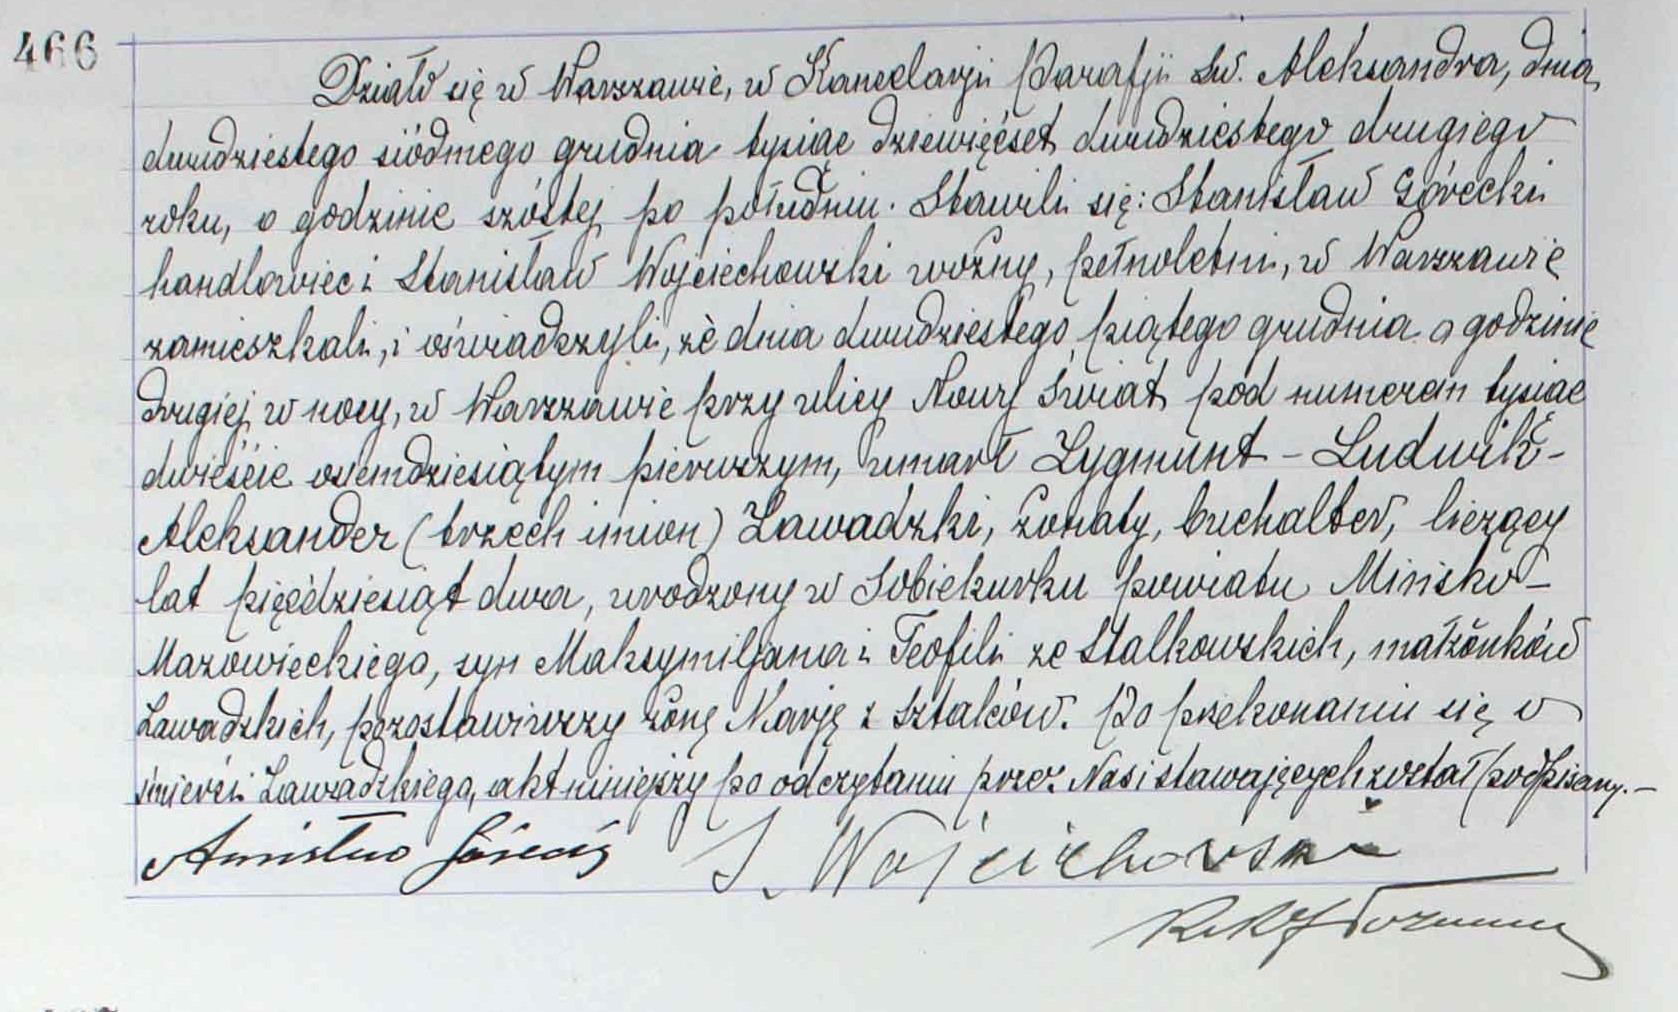 466
Działo się w Warszawie, w Kancelarji Parafji Św. Aleksandra, dnia
dwudziestego siódmego grudnia tysiąc dziewięćset dwudziestego drugiego
roku, o godzinie szóstej po południu. Stawili się: Stanisław Górecki
handlowiec i Stanisław Wojciechowski woźny, pełnoletni, w Warszawie
zamieszkali, i oświadczyli, że dnia dwudziestego piątego grudnia o godzinie
drugiej w nocy, w Warszawie przy ulicy Nowy Świat pod numerem tysiąc
dwieście osiemdziesiątym pierwszym, umarł Zygmunt - Ludwik -
Aleksander (trzech imion) Zawadzki, żonaty, buchalter, liczący
lat pięćdziesiąt dwa, urodzony w Sobiekursku powiatu Mińsko -
Mazowieckiego, syn Maksymiljana i Teofili ze Stalkowskich, małżonków
Zawadzkich, pozostawiwszy żonę Marję z Sztalców. Po przekonaniu się o
śmierci Zawadzkiego, akt niniejszy po odczytaniu przez Nas i stawających został podpisany. -
Stanisław Górecki S. Wojciechowski